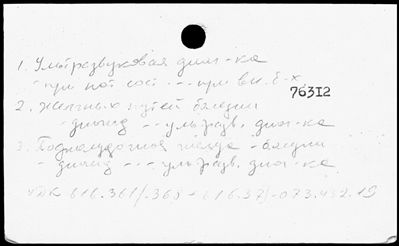 1. Ультразвуковая диаг-ка
- при пат. сост. --- при вн. б-х
76312
2. Желчных путей болезни
- диагн. -- ультразв. диаг-ка
3. Поджелудочная железа - болезни
- диагн. --- ультразв. диаг-ка
УДК 616.361/.366+616.37/-073.432.19